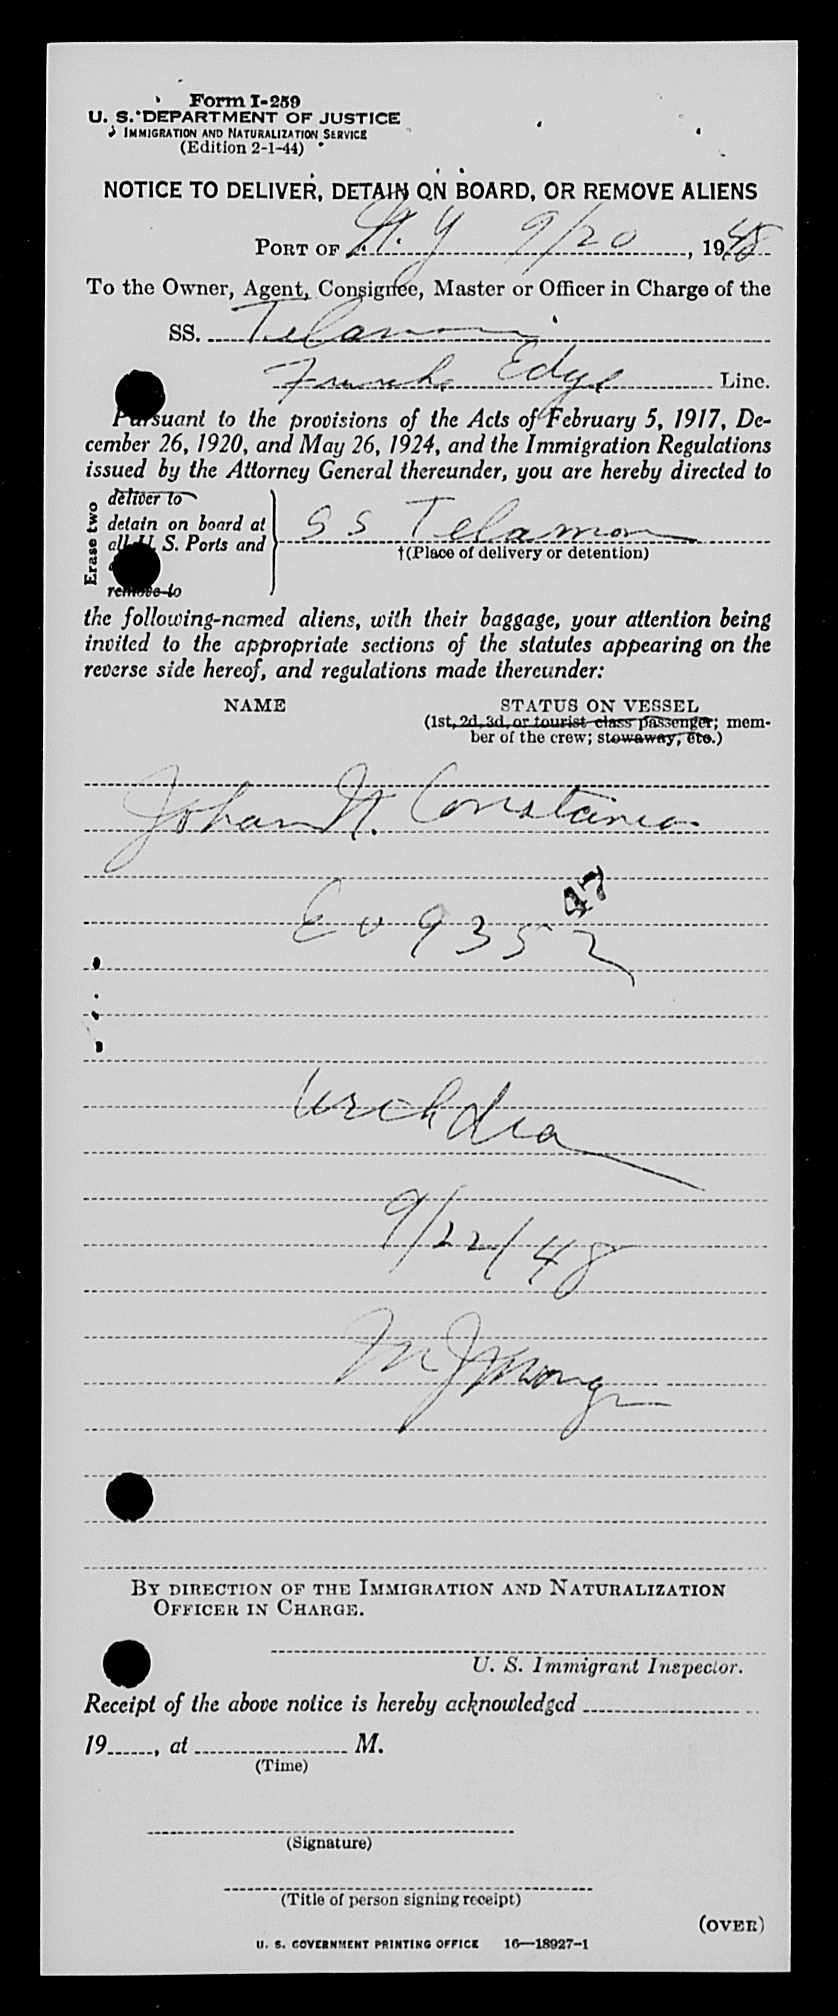 Form I-259
U. S. DEPARTMENT OF JUSTICE
IMMIGRATION AND NATURALIZATION SERVICE
(Edition 2-1-44)
NOTICE TO DELIVER, DETAIN ON BOARD, OR REMOVE ALIENS
PORT OF N.Y 9/20, 1948
To the Owner, Agent, Consignee, Master or Officer in Charge of the
SS. Telamon
Edye Line.
Pursuant to the provisions of the Acts of February 5, 1917, De-
cember 26, 1920, and May 26, 1924, and the Immigration Regulations
issued by the Attorney General thereunder, you are hereby directed to
Erase two
deliver to
detain on board at
all U. S. Ports and
remove to
SS Telamon
†(Place of delivery or detention)
the following-named aliens, with their baggage, your attention being
invited to the appropriate sections of the statutes appearing on the
reverse side hereof, and regulations made thereunder:
NAME STATUS ON VESSEL
(1st, 2d, 3d, or tourist class passenger; mem-
ber of the crew; stowaway, etc.)
Johan N. Constancia
47
9352
9/22/48
BY DIRECTION OF THE IMMIGRATION AND NATURALIZATION
OFFICER IN CHARGE.
U. S. Immigrant Inspector.
Receipt of the above notice is hereby acknowledged
19, at M.
(Time)
(Signature)
(Title of person signing receipt)
(OVER)
U. S. GOVERNMENT PRINTING OFFICE 16—18927-1